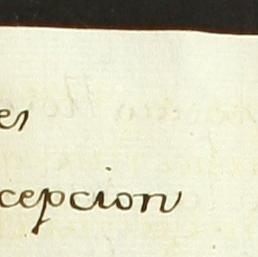 es
cepcion